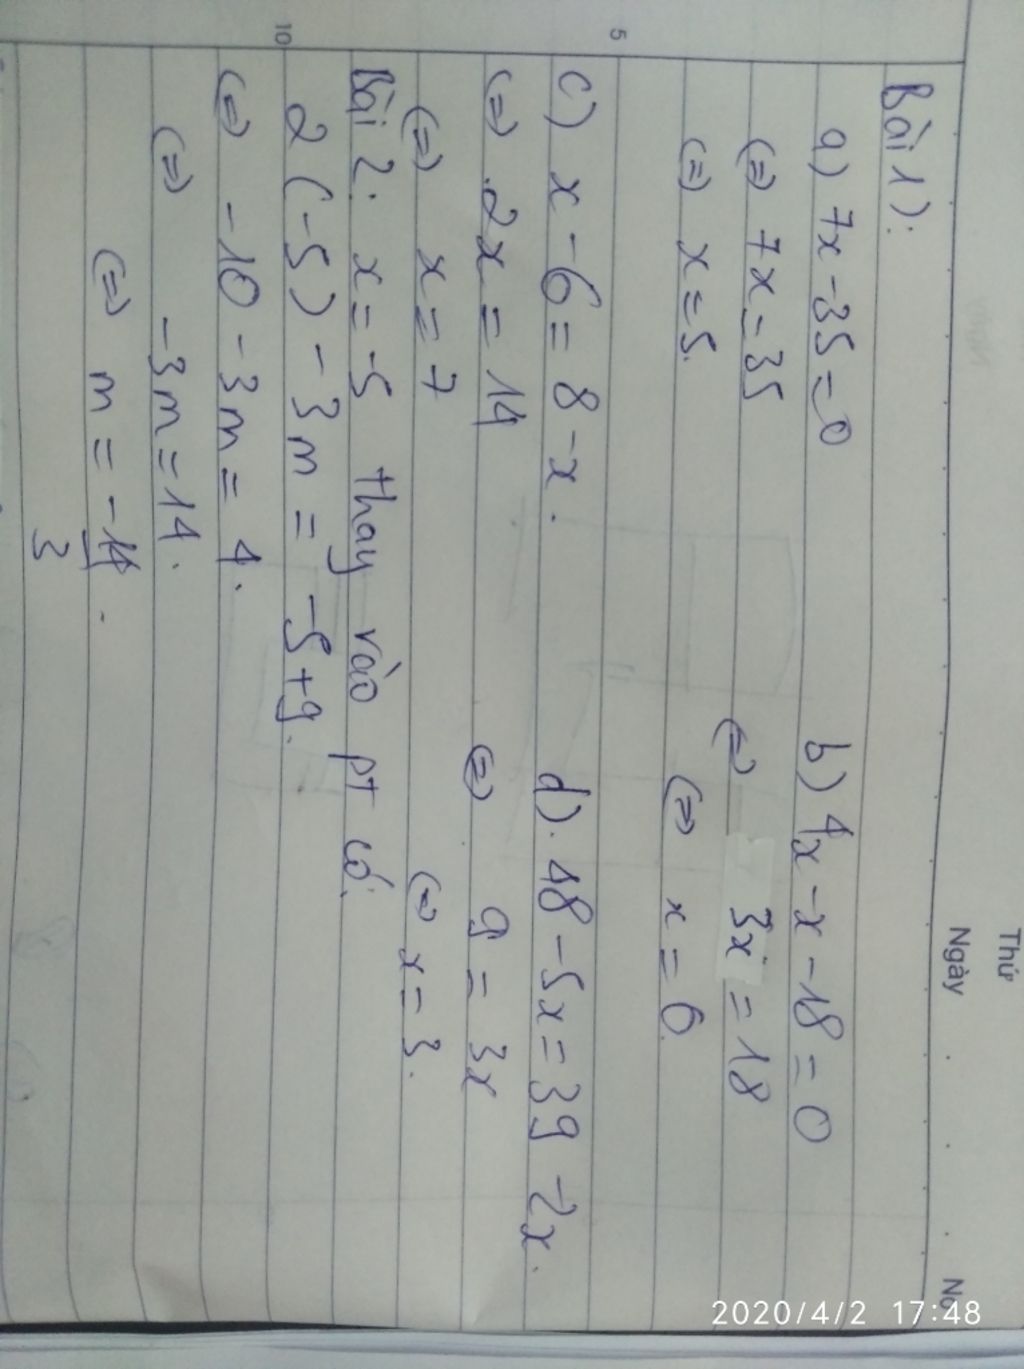 Thứ
Ngày . . . No
Bài 1):
a) 7x - 35 = 0
(=) 7x = 35
(=) x = 5.
b) 4x - x - 18 = 0
(=) 3x = 18
(=) x = 6
5
c) x - 6 = 8 - x.
(=) 2x = 14
(=) x = 7
d). 48 - 5x = 39 - 2x.
(=) 9 = 3x
(=) x = 3.
Bài 2: x = -5 thay vào pt có:
10
2 (-5) - 3m = -5 + 9.
(=) -10 - 3m = 4.
(=) -3m = 14.
(=) m = -14/3.
2020/4/2 17:48